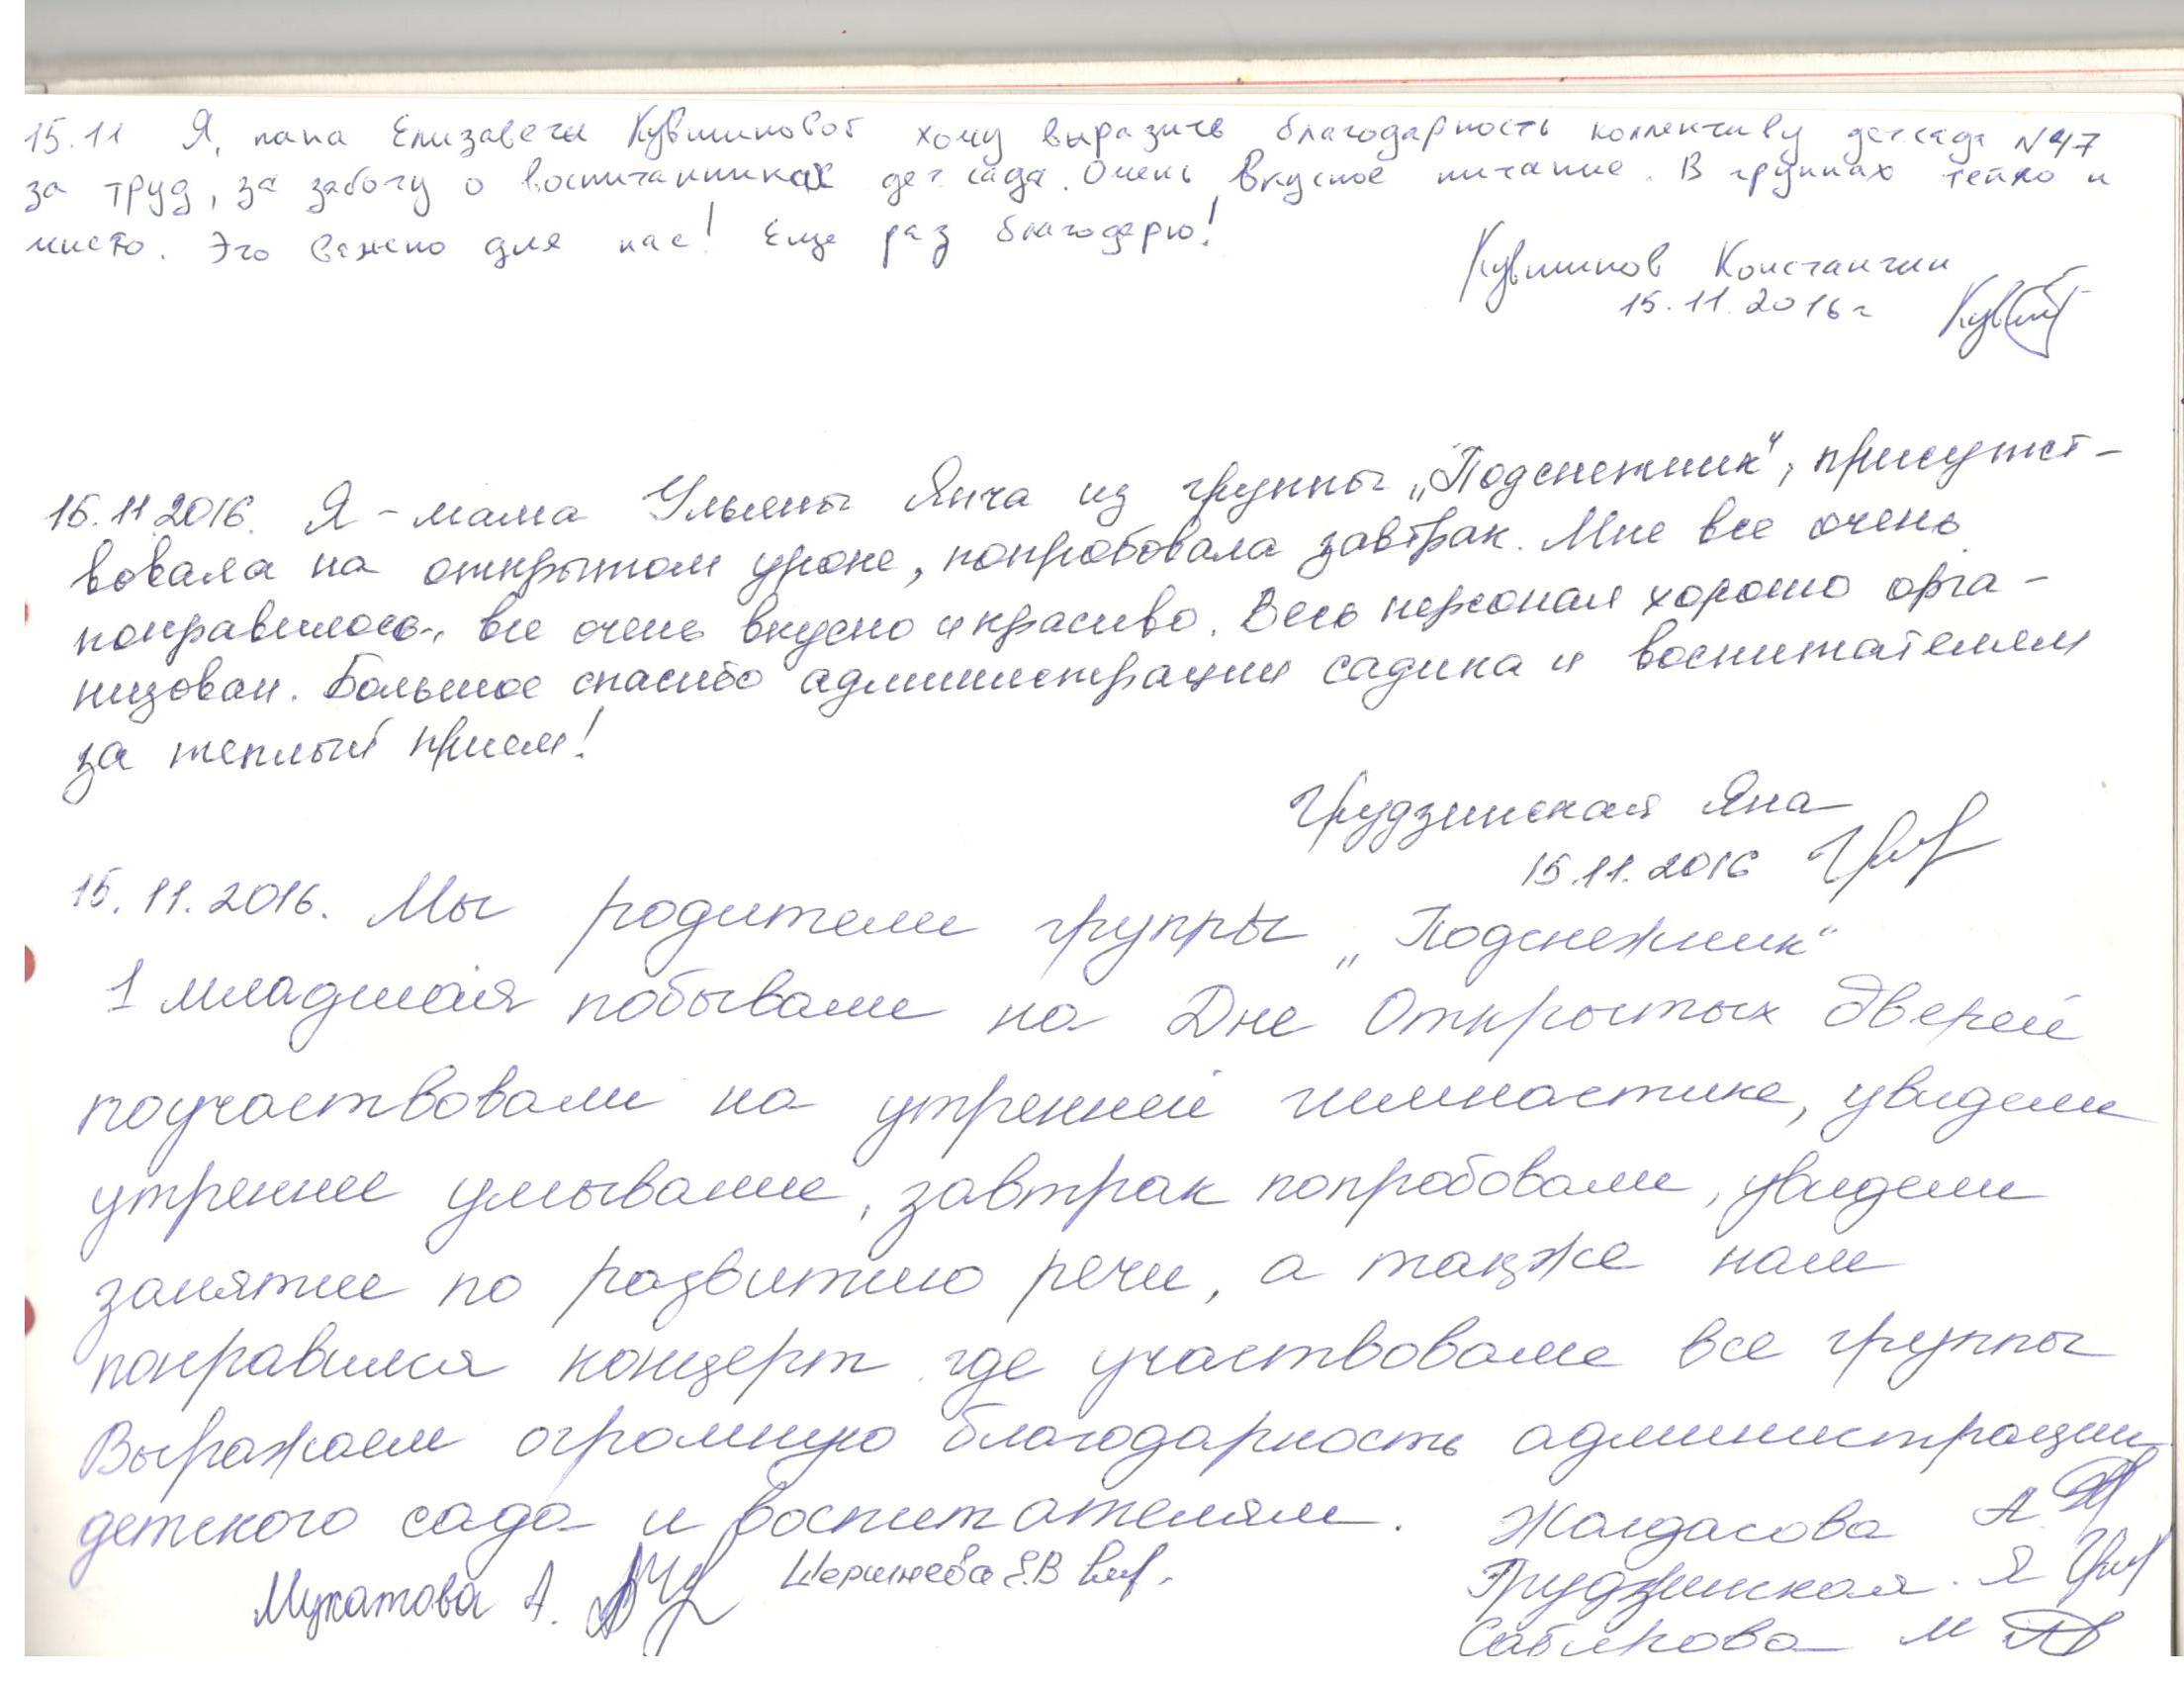 15.11 Я, папа Елизаветы Кувшиновой хочу выразить благодарность коллективу детсада N47
за труд, за заботу о воспитанниках дет. сада. Очень вкусное питание. В группах тепло и
чисто. Это важно для нас! Еще раз благодарю!
Кувшинов Константин
15.11.2016г
15.11.2016. Я - мама Ульяны Янча из группы „Подснежник“, присутст-
вовала на открытом уроке, попробовала завтрак. Мне все очень
понравилось, все очень вкусно и красиво. Весь персонал хорошо орга-
низован. Большое спасибо администрации садика и воспитателям
за теплый прием!
Грудзинская Яна
15.11.2016
15.11.2016. Мы родители группы „Подснежник“
1 младшая побывали на Дне Открытых дверей
поучаствовали на утренней гимнастике, увидели
утренние умывание, завтрак попробовали, увидели
занятие по развитию речи, а также нам
понравился концерт где участвовали все группы
Выражаем огромную благодарность администрации
детского сада и воспитателям.
Жолдасова А.
Мукатова А. Е.В
Грудзинская. Я
Сабирова М